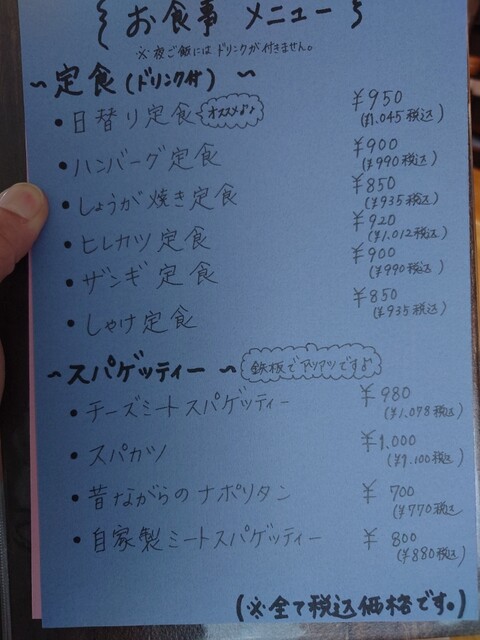 お食事 メニュー
※夜ご飯にはドリンクが付きません。
~定食(ドリンク付) ~
・日替り定食 オススメ♪♪ ¥950
(¥1.045税込)
・ハンバーグ定食 ¥900
(¥990税込)
・しょうが焼き定食 ¥850
(¥935税込)
・ヒレカツ定食 ¥920
(¥1.012税込)
・ザンギ定食 ¥900
(¥990税込)
・しゃけ定食 ¥850
(¥935税込)
~スパゲッティー~ 鉄板でアツアツですよ
・チーズミートスパゲッティー ¥980
(¥1.078税込)
・スパカツ ¥1.000
(¥1.100税込)
・昔ながらのナポリタン ¥700
(¥770税込
・自家製ミートスパゲッティー ¥800
(¥880税込)
(※全て税込価格です。)